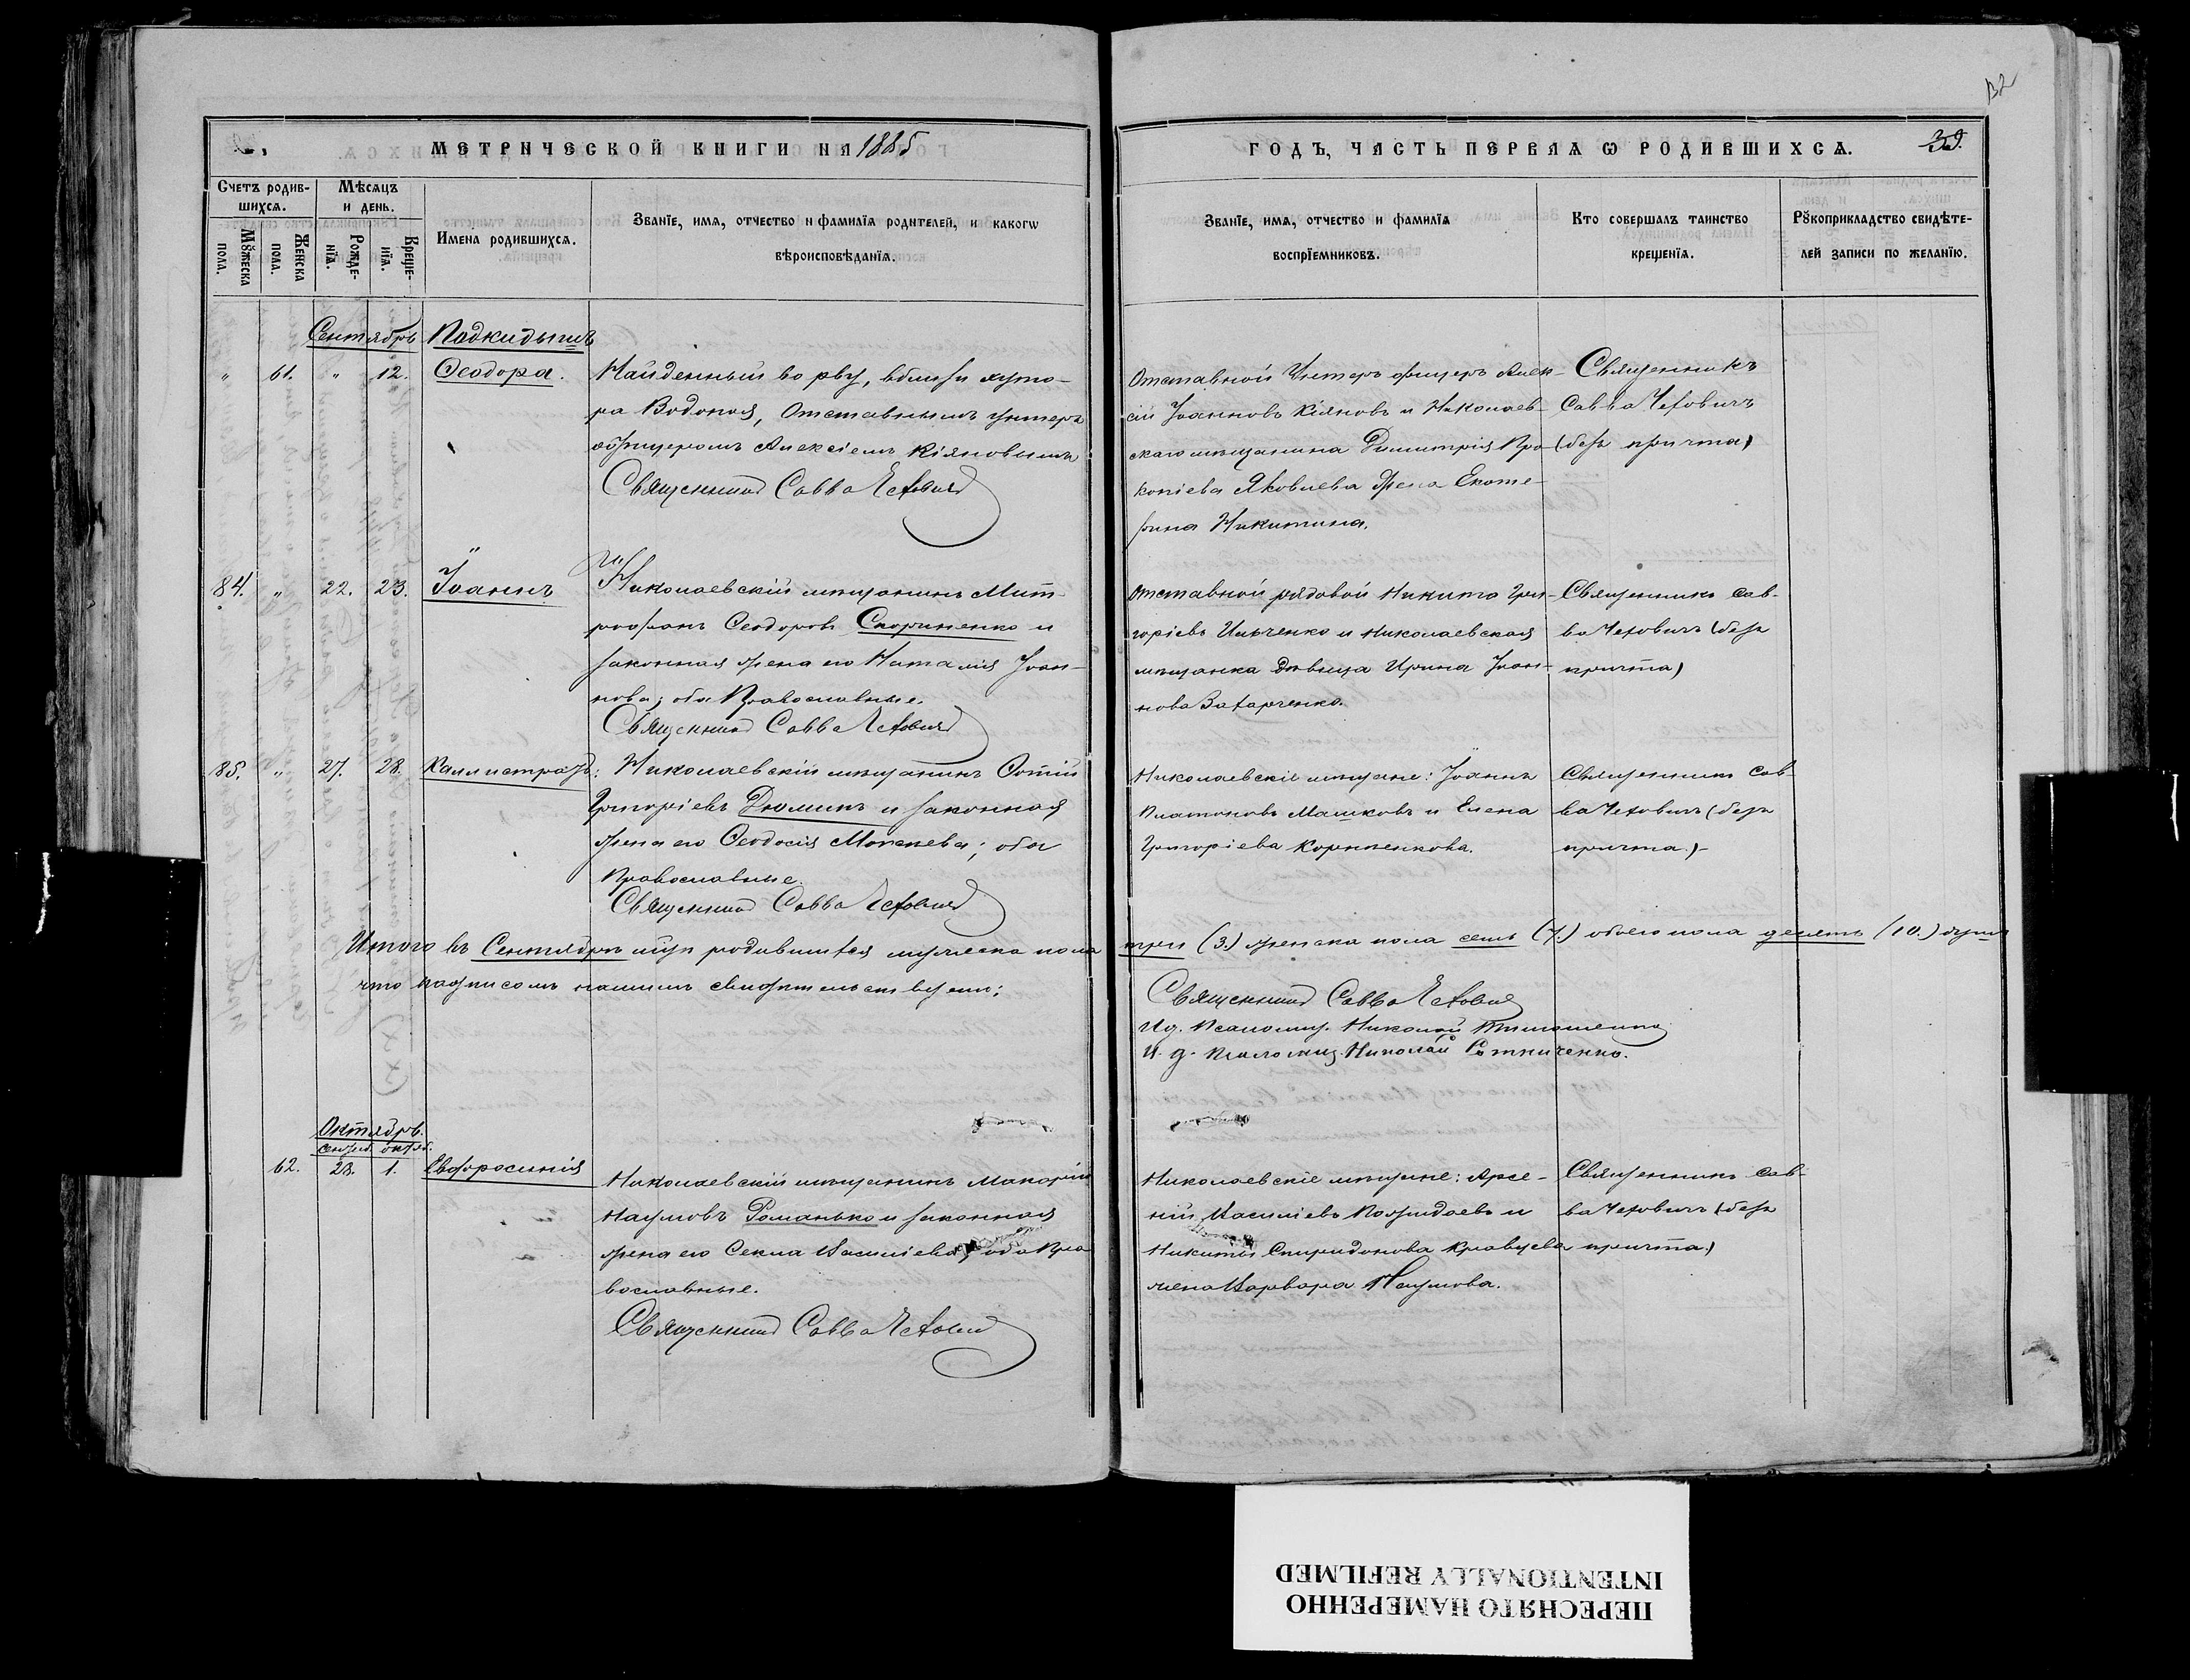 МЕТРИЧЕСКОЙ КНИГИ НА 1885
ГОДЪ, ЧАСТЬ ПЕРВАЯ Ѡ РОДИВШИХСѦ.
39.
132
Счетъ родив-
шихсѧ.
Мѣсѧцъ
и день.
Мꙋжеска
пола.
Женска
пола.
Рожде-
нїѧ.
Креще-
нїѧ.
Имена родившихсѧ.
Званїе, имѧ, отчество и фамилїѧ родителей, и какогѡ
вѣроисповѣданїѧ.
Званїе, имѧ, отчество и фамилїѧ
воспрїемниковъ.
Кто совершалъ таинство
крещенїѧ.
Рꙋкоприкладство свидѣте-
лей записи по желанїю.
Сентябрь
Подкидышъ
" 61. " 12. Ѳеодора.
Найденный во рву, вблизи хуто-
ра Водопоя, Отставнымъ унтеръ
офицеромъ Алексіемъ Кіяновымъ
Священникъ Савва Чехович
Отставной Унтеръ офицеръ Алек-
сій Іоанновъ Кіяновъ и Николаев-
скаго мѣщанина Димитрія Про-
копіева Яковлева жена Екате-
рина Никитина.
Священникъ
Савва Чеховичъ
(безъ причта)
84. " 22. 23. Іоаннъ
Николаевскій мѣщанинъ Мит-
рофанъ Ѳеодоровъ Скориненко и
законная жена его Наталія Іоан-
нова; оба Православные.
Священникъ Савва Чехович
Отставной рядовой Никита Гри-
горіевъ Ильченко и Николаевская
мѣщанка дѣвица Ирина Іоан-
нова Захарченко.
Священникъ Сав-
ва Чеховичъ (безъ
причта)
85. " 27. 28. Каллистратъ:
Николаевскій мѣщанинъ Фотій
Григоріевъ Дюминъ и законная
жена его Ѳеодосія Мокеева; оба
Православные.
Священникъ Савва Чехович
Николаевскіе мѣщане: Іоаннъ
Платоновъ Машковъ и Елена
Григоріева Корниенкова.
Священникъ Сав-
ва Чеховичъ (безъ
причта.)-
Итого въ Сентябрѣ мцѣ родившихся мужеска пола три (3.) женска пола семь (7.) обоего пола десять (10.) душъ
что подписомъ нашимъ свидѣтельствуемъ:
Священникъ Савва Чехович
И. д. Псаломщ. Николай
И. д. Псаломщ. Николай Сотниченко.
Октябрь.
сентяб. октяб.
62. 28. 1. Евфросинія
Николаевскій мѣщанинъ Макарій
Наумовъ Романько и законная
жена его Ѳекла Василіева, оба Пра-
вославные.
Священникъ Савва Чехович
Николаевскіе мѣщане: Арсе-
ній Василіевъ и
Никиты Спиридонова Кравцева
жена Варвара Наумова.
Священникъ Сав-
ва Чеховичъ (безъ
причта.)
ПЕРЕСНЯТО НАМЕРЕННО
INTENTIONALLY REFILMED